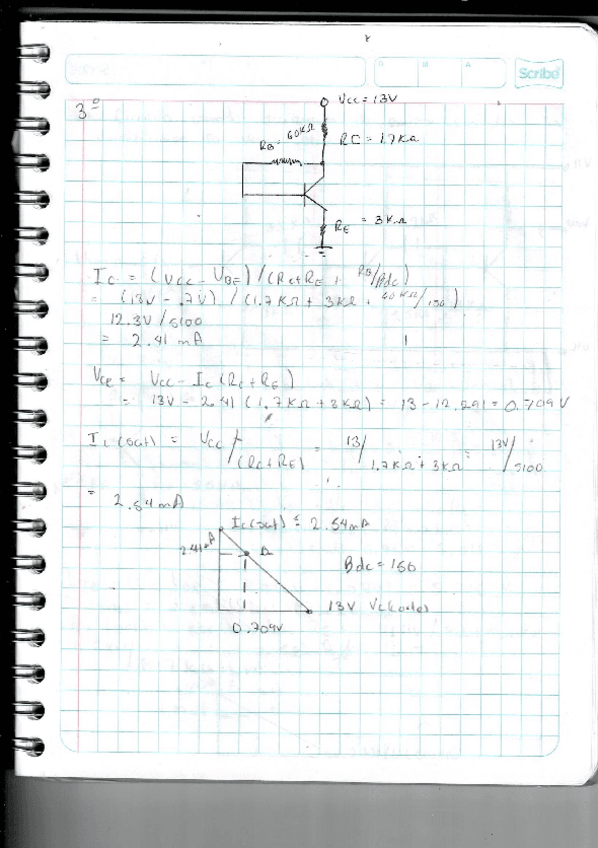 Scribe
3º
Vcc = 13V
RB = 60KΩ
RC = 1.7KΩ
RE = 3KΩ
Ic = (Vcc - VBE) / (Rc+RE + RB/βdc)
= (13V - .7V) / (1.7KΩ + 3KΩ + 60KΩ/150)
12.3V / 5100
= 2.41 mA
Vce = Vcc - Ic (Rc + RE)
= 13V - 2.41 (1.7KΩ + 3KΩ) = 13 - 12.291 = 0.709V
Ic (sat) = Vcc / (Rc + RE) = 13 / 1.7KΩ + 3KΩ = 13V / 5100
= 2.54mA
Ic (sat) = 2.54mA
2.41mA
Bdc = 150
13V Vc(corte)
0.709V